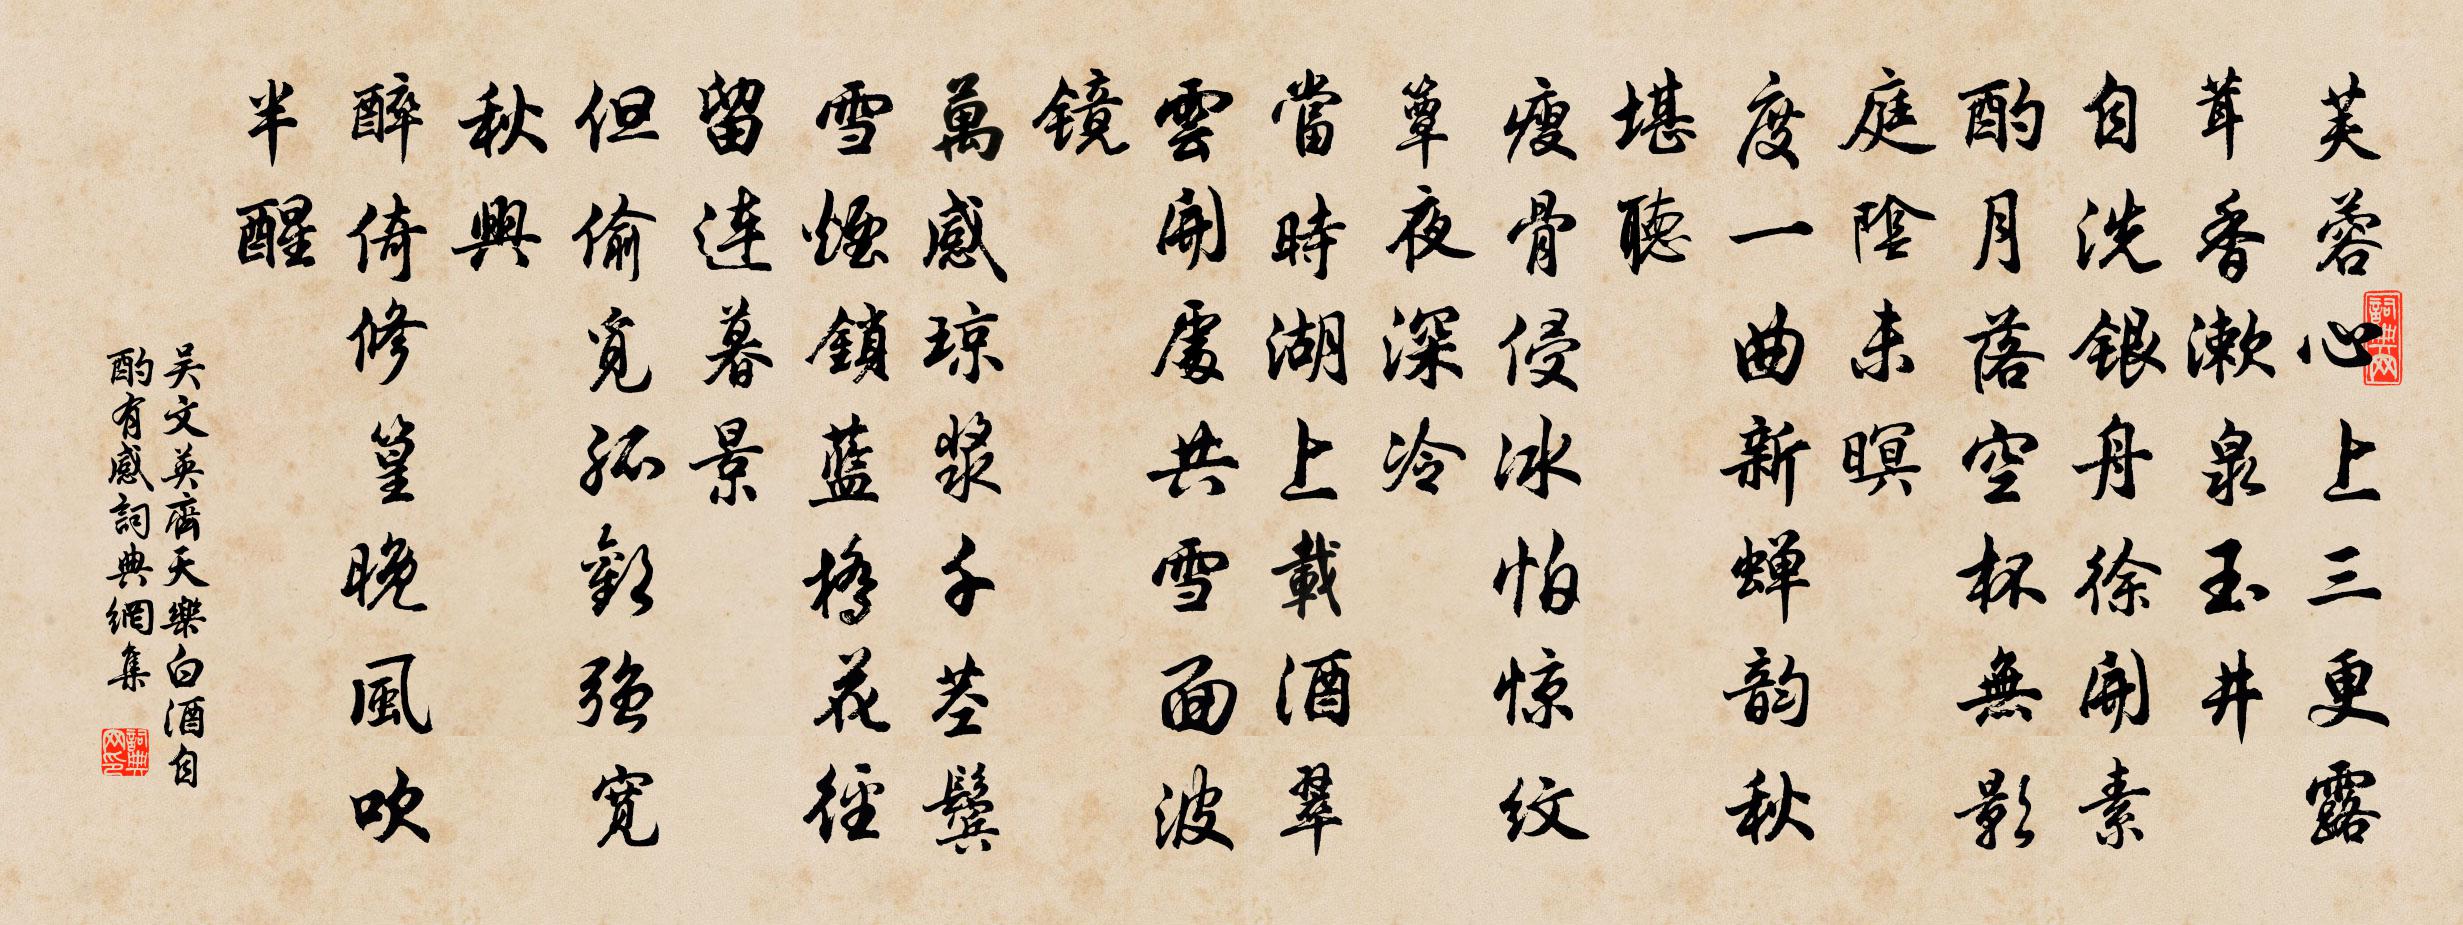 芙蓉心上三更露
茸香漱泉玉井
自洗銀舟徐開素
酌月落空杯無影
庭陰未暝
度一曲新蝉韵秋
堪聽
瘦骨侵冰怕惊纹
簟夜深冷
當時湖上載酒翠
雲開處共雪面波
镜
萬感琼浆千茎鬓
雪煙鎖藍橋花徑
留連暮景
但偷覓孤歡强寬
秋興
醉倚修篁晚風吹
半醒
吴文英齊天樂白酒自
酌有感詞典網集
詞典网
詞典网印